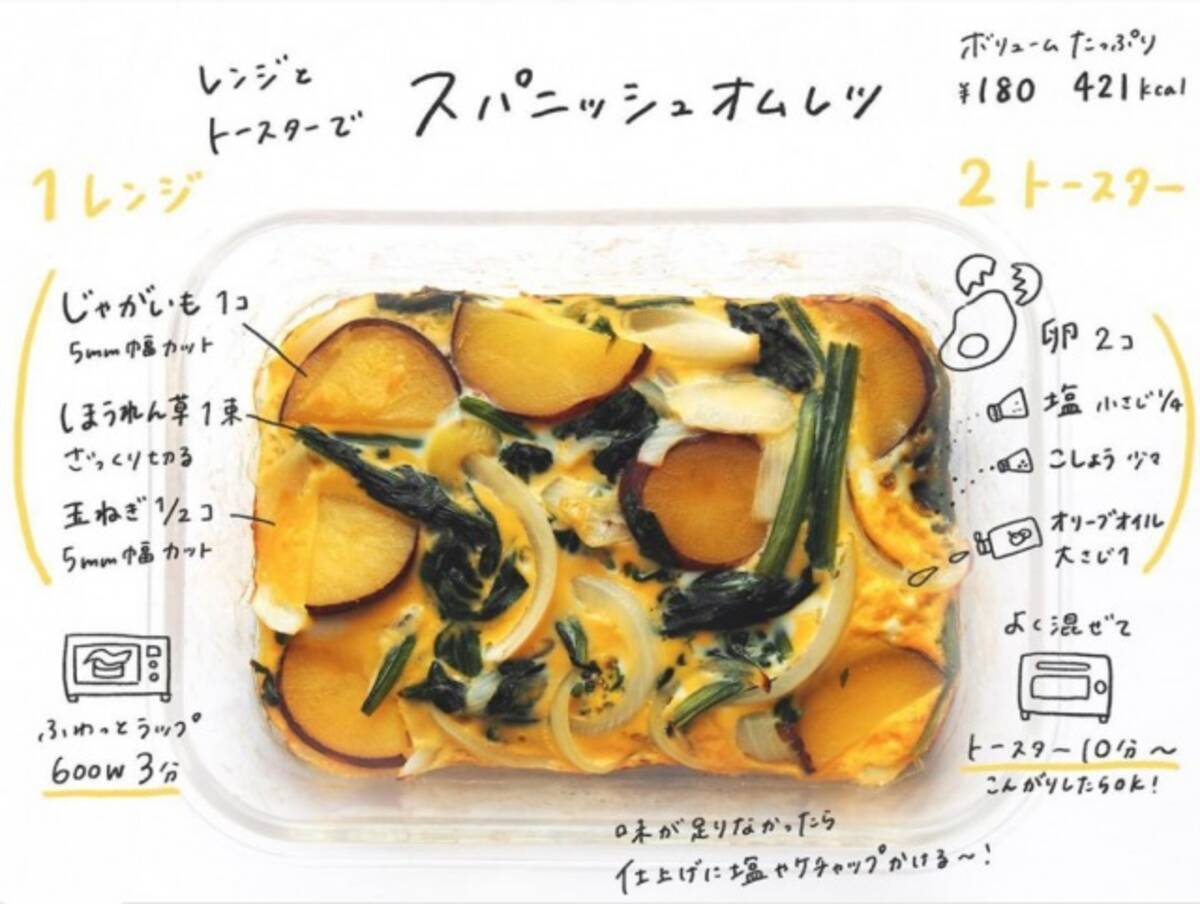 レンジと
トースターで
スパニッシュオムレツ
ボリュームたっぷり
¥180 421kcal
1 レンジ
じゃがいも 1コ
5mm幅カット
しまうれん草 1束
ざっくり切る
玉ねぎ 1/2コ
5mm幅カット
ふわっとラップ
600W 3分
2 トースター
卵 2コ
塩 小さじ1/4
こしょう 少々
オリーブオイル
大さじ1
よく混ぜて
トースター10分〜
こんがりしたらOK!
味が足りなかったら
仕上げに塩やケチャップかける〜!